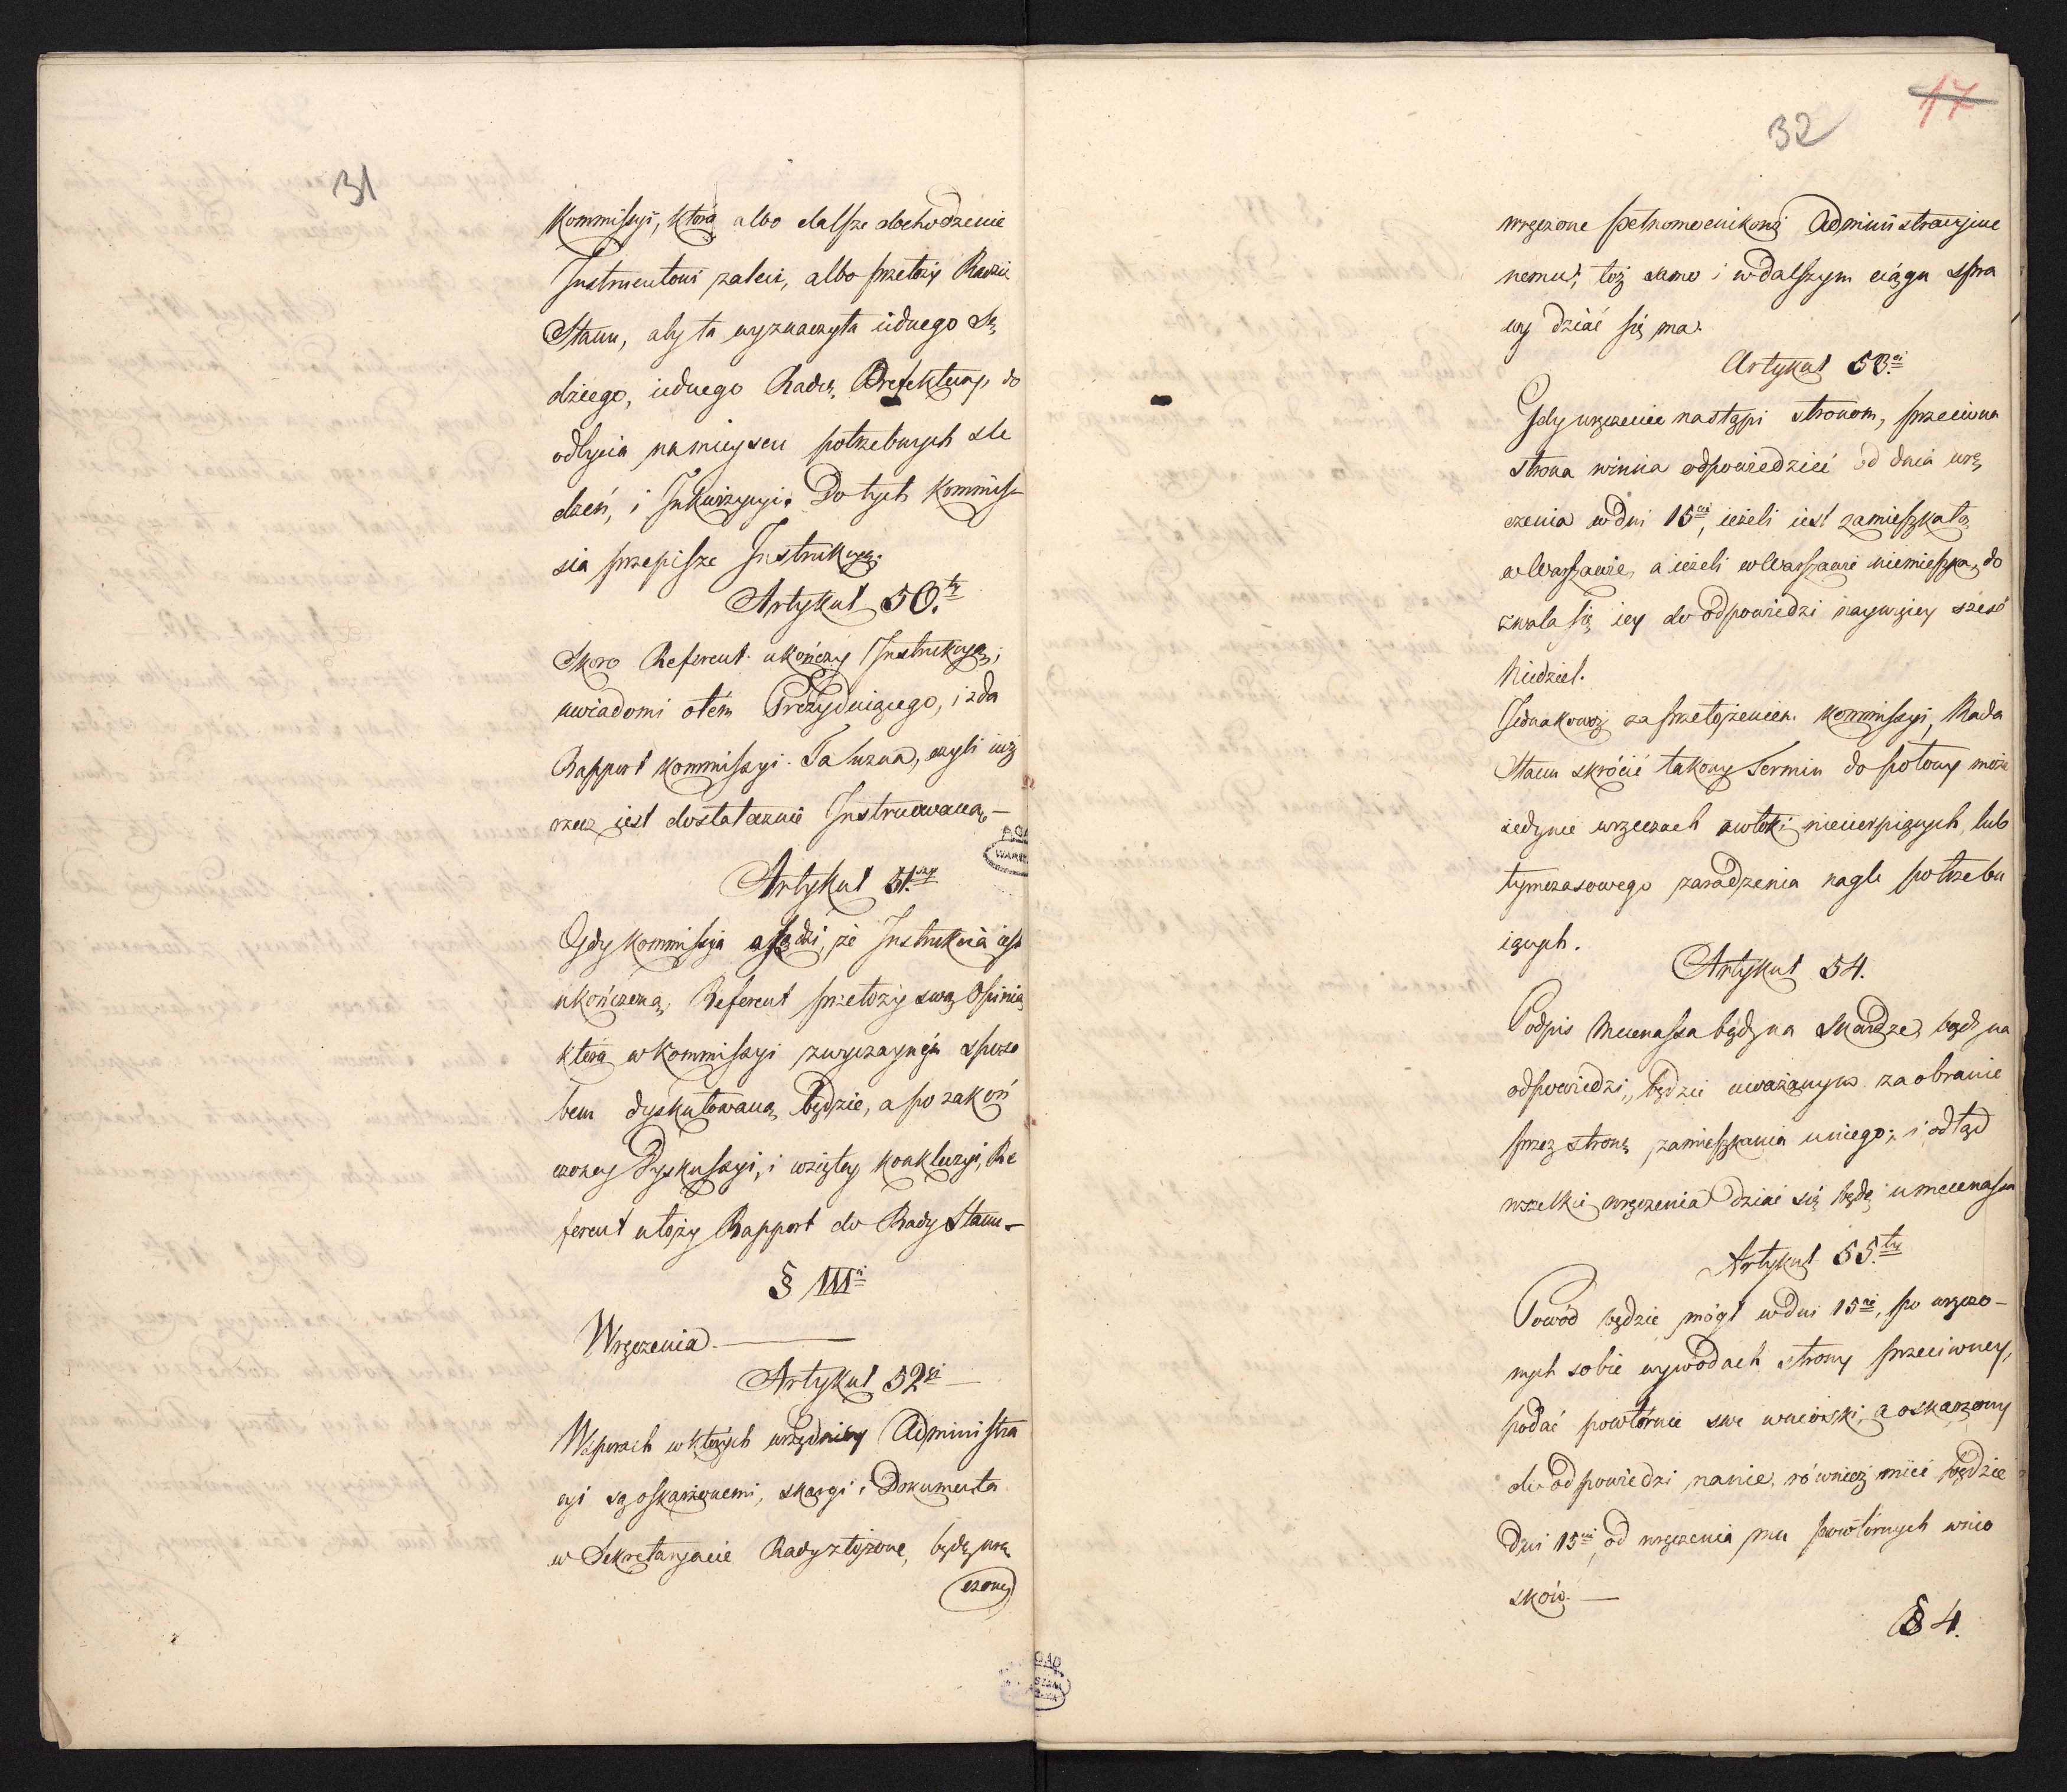 31
Kommissyi, którą albo dalsze dochodzenie
Instruentowi zaleci, albo przełoży Radzie
Stanu, aby ta wyznaczyła iednego Sę,
dziego, iednego Radcę Prefektury, do
odbycia na mieyscu potrzebnych śle
dzeń, i Inkwizycyi. Do tych Kommis
sia przepisze Instrukcyą.
Artykuł 50.ty
Skoro Referent ukończy Instrukcyą,
uwiadomi o tém Prezyduiącego, i zda
Rapport Kommissyi. Ta uzna, czyli iuż
rzecz iest dostatecznie Instruowana,—
Artykuł 51.szy
Gdy Kommissya osądzi, że Instrukcia iest
ukończona, Referent przełoży swą Opinią
która w Kommissyi zwyczaynym sposo
bem dyskutowaną będzie, a po zakoń
czoney Dyskussyi, i wziętey konkluzyi, Re
ferent ułoży Rapport do Rady Stanu—
§ IIIci
Wręczenia.—
Artykuł 52gi—
W sporach w których urzędnicy Administra
cyi są oskarżonemi, skargi i Dokumenta
w Sekretaryacie Rady złożone, będą wrę
czone
17
32
wręczone pełnomocnikowi Administracyine
nemu, toż samo i w dalszym ciągu spra
wy dziać się ma.
Artykuł 53.ci
Gdy wręczenie nastąpi stronom, przeciwna
strona winna odpowiedzieć od dnia wrę
czenia w dni 15cie, ieżeli iest zamieszkałą
w Warszawie, a ieżeli w Warszawie niemieszka, do
zwala się iey do odpowiedzi naywięcy sześć
Niedziel.
Jednakowoż za przełożeniem Kommissyi, Rada
Stanu skrócić takowy Termin do połowy może
iedynie w rzeczach zwłoki niecierpiących, lub
tymczasowego zaradzenia nagle potrzebu
iących.
Artykuł 54.
Podpis Mecenassa bądź na Skardze, bądź na
odpowiedzi, będzie uważanym za obranie
przez stronę zamieszkania u niego; i odtąd
wszelkie wręczenia dziać się będą u mecenassa
Artykuł 55.ty
Powód będzie mógł w dni 15cie, po wręczo—
nych sobie wywodach strony przeciwney,
podać powtórnie swe wnioski, a oskarzony
do odpowiedzi nanie, również mieć będzie
Dni 15cie, od wręczenia mu powtórnych wnio
sków.—
§ 4.